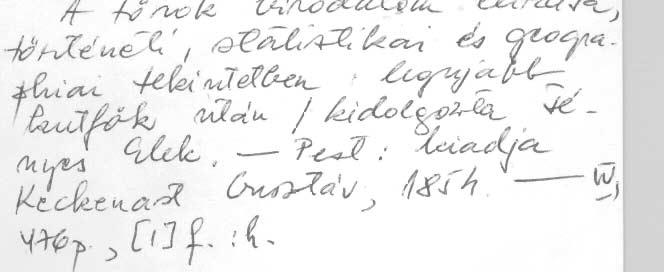 A török birodalom leirása,
történeti, statistikai és geogra-
phiai tekintetben legujabb
kutfők után / kidolgozta Fé-
nyes Elek. — Pest : kiadja
Keckenast Gusztáv, 1854. — IV,
476 p., [1] f. : h.